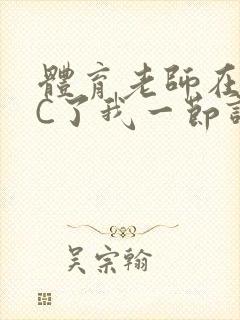 體育老師在
C了我一節
吴宗翰